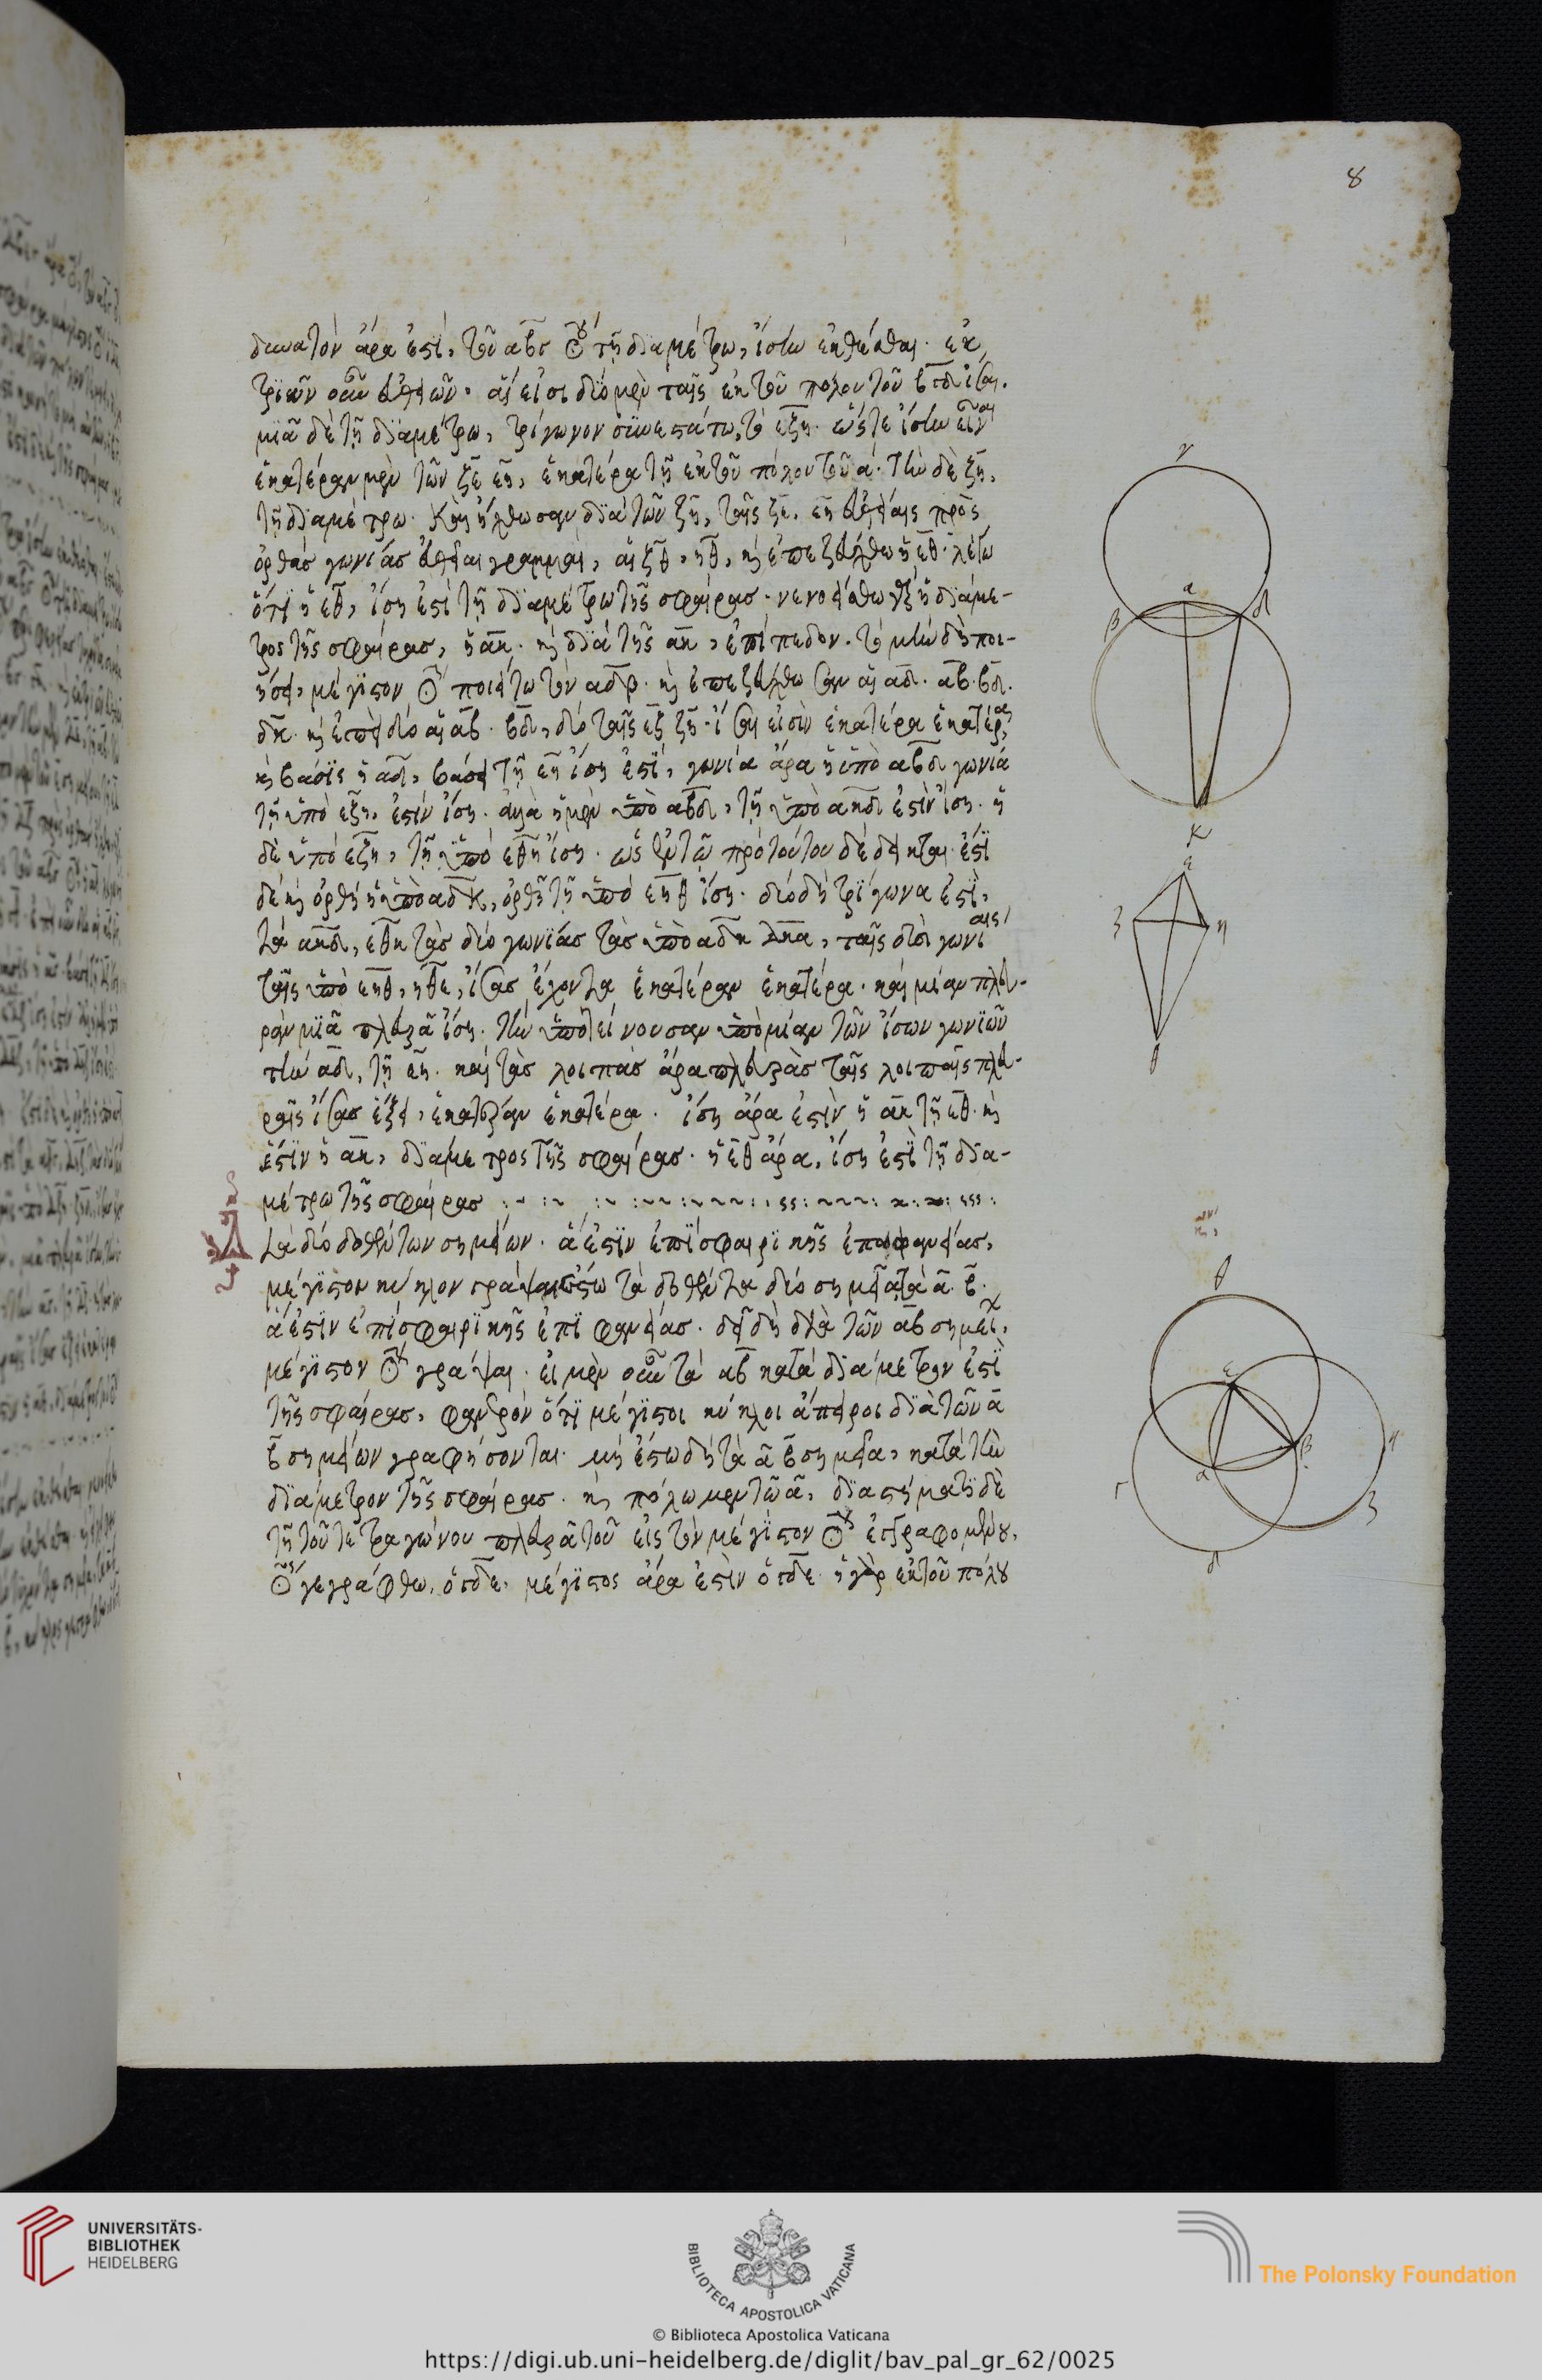 8
δυνατὸν ἄρα ἐστὶ, τοῦ αβγ κύκλου τῇ διαμέτρω, ἴσην ἐκθέσθαι. ἐκ
τριῶν οὖν εὐθειῶν. αἵ εἰσι δύο μὲν ταῖς ἐκ τοῦ πόλου τοῦ βγδ ἴσαι.
μϊᾶ δὲ τῇ διαμέτρω, τρίγωνον συνεστάτω, τὸ εζη. ὥστε ἴσην εἶναι
ἑκατέραν μὲν τῶν ζε εη, ἑκατέρα τῇ ἐκ τοῦ πόλου τοῦ ά. τὴν δὲ ζη,
τῇ διαμέτρω. καὶ ἤχθωσαν διὰ τῶν ζη, ταῖς ζε. εη εὐθείαις πρὸς
ὀρθὰς γωνίας εὐθεῖαι γραμμαὶ, αἱ ζθ, ηθ, καὶ ἐπεζεύχθω ἡ εθ. λέγω
ὅτι ἡ εθ, ἴση ἐστὶ τῇ διαμέτρω τῆς σφαίρας. νενοείσθω γὰρ ἡ διάμε-
τρος τῆς σφαίρας, ἡ ακ. καὶ διὰ τῆς ακ, ἐπίπεδον. τομὴν δὴ ποι-
ήσει, μέγιστον κύκλον ποιείτω τὸν αδβ. καὶ ἐπεζεύχθωσαν αἱ αδ. αβ. βδ.
δκ. καὶ ἐπεὶ δύο αἱ αβ. βδ, δύο ταῖς εζ ζη. ἴσαι εἰσὶν ἑκατέρα ἑκατέρα,
καὶ βάσις ἡ αδ, βάσει τῇ εη ἴση ἐστί, γωνία ἄρα ἡ ὑπὸ αβδ γωνία
τῇ ὑπὸ εζη, ἐστὶν ἴση. ἀλλὰ ἡ μὲν ὑπὸ αβδ, τῇ ὑπὸ ακδ ἐστὶν ἴση. ἡ
δὲ ὑπὸ εζη, τῇ ὑπὸ εθη ἴση. ὡς ἐν τῷ πρὸ τούτου δέδεικται. ἐστὶ
δὲ καὶ ὀρθὴ ἡ ὑπὸ αδκ, ὀρθῇ τῇ ὑπὸ εηθ ἴση. δύο δὴ τρίγωνα ἐστὶ,
τὰ ακδ, εθη τὰς δύο γωνίας τὰς ὑπὸ αδκ δκα, ταῖς δυσὶ γωνίαις
ταῖς ὑπὸ εηθ, ηθε, ἴσας ἔχοντα ἑκατέραν ἑκατέρα. καὶ μίαν πλευ-
ρὰν μϊᾶ πλευρᾶ ἴση. τὴν ὑποτείνουσαν ὑπὸ μίαν τῶν ἴσων γωνιῶν
τὴν αδ, τῇ εη. καὶ τὰς λοιπὰς ἄρα πλευρὰς ταῖς λοιπαῖς πλευ-
ραῖς ἴσας ἕξει, ἑκατέραν ἑκατέρα. ἴση ἄρα ἐστὶν ἡ ακ τῇ εθ. καὶ
ἐστὶν ἡ ακ, διάμετρος τῆς σφαίρας. ἡ εθ ἄρα, ἴση ἐστὶ τῇ δια-
μέτρω τῆς σφαίρας
Διὰ δύο δοθέντων σημείων. ἅ ἐστιν ἐπὶ σφαιρικῆς ἐπιφανείας,
μέγιστον κύκλον γράψαι ἔστω τὰ δοθέντα δύο σημεῖα τὰ α. β.
ἅ ἐστιν ἐπὶ σφαιρικῆς ἐπιφανείας. δεῖ δὴ διὰ τῶν αβ σημείων,
μέγιστον κύκλον γράψαι. εἰ μὲν οὖν τὰ αβ κατὰ διάμετρον ἐστὶ
τῆς σφαίρας, φανερὸν ὅτι μέγιστοι κύκλοι ἄπειροι διὰ τῶν α
β σημείων γραφήσονται. μὴ ἔστω δὴ τὰ α β σημεῖα, κατὰ τὴν
διάμετρον τῆς σφαίρας. καὶ πόλω μὲν τῶ α, διαστήματι δὲ
τῇ τοῦ τετραγώνου πλευρᾶ τοῦ εἰς τὸν μέγιστον κύκλον ἐγγραφομένου,
κύκλος γεγράφθω, ὁ γδε. μέγιστος ἄρα ἐστὶν ὁ γδε. ἡ γὰρ ἐκ τοῦ πόλου
γ
α
β
δ
κ
ε
ζ
η
θ
θ
ε
β
α
η
γ
ζ
δ
UNIVERSITÄTS-
BIBLIOTHEK
HEIDELBERG
BIBLIOTECA APOSTOLICA VATICANA
The Polonsky Foundation
© Biblioteca Apostolica Vaticana
https://digi.ub.uni-heidelberg.de/diglit/bav_pal_gr_62/0025